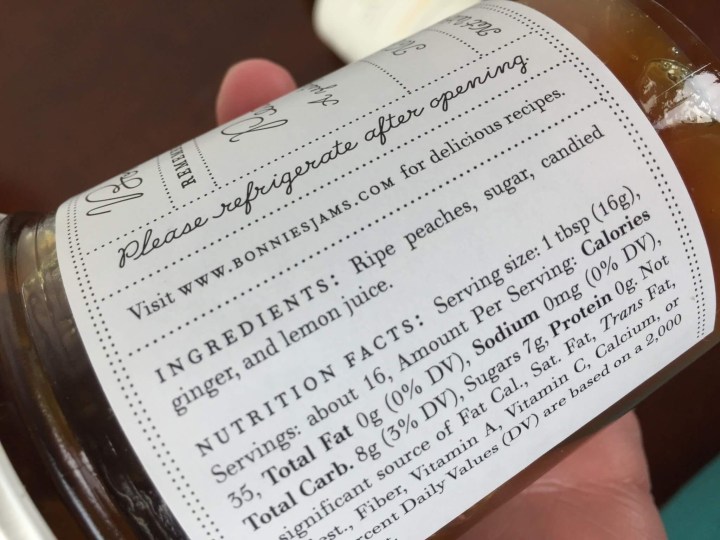 REMEM
Please refrigerate after opening.
Visit WWW.BONNIESJAMS.COM for delicious recipes.
INGREDIENTS: Ripe peaches, sugar, candied
ginger, and lemon juice.
NUTRITION FACTS: Serving size: 1 tbsp (16g),
Servings: about 16, Amount Per Serving: Calories
35, Total Fat 0g (0% DV), Sodium 0mg (0% DV),
Total Carb. 8g (3% DV), Sugars 7g, Protein 0g. Not
significant source of Fat Cal., Sat. Fat, Trans Fat,
est., Fiber, Vitamin A, Vitamin C, Calcium, or
rcent Daily Values (DV) are based on a 2,000